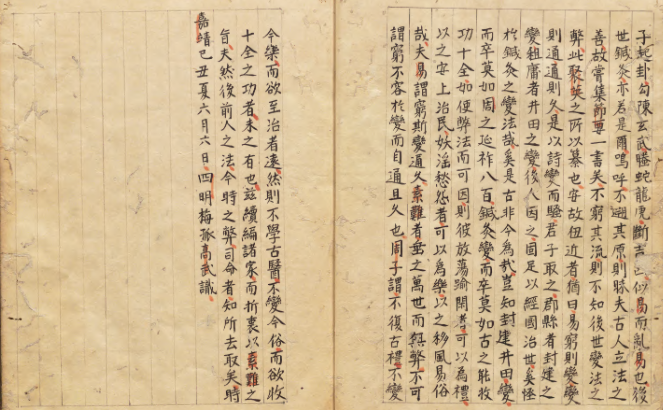 子起卦勾陳玄武螣蛇龍虎斷吉凶似易而亂易也後
世鍼灸亦若是爾嗚呼不遡其原則昧夫古人立法之
善故嘗集節要一書矣不窮其流則不知後世變法之
弊此聚英之所以纂也安故狃近者猶曰易窮則變變
則通通則久是以詩變而騷君子取之郡縣者封建之
變租庸者井田之變後人因之固足以經國治世矣怪
於鍼灸之變法哉奚是古非今為哉豈知封建井田變
而卒莫如周之延祚八百鍼灸變而卒莫如古之能收
功十全如使弊法而可因則彼放蕩踰閑者可以為禮
以之安上治民妖淫愁怨者可以為樂以之移風易俗
哉夫易謂窮斯變通久素難者垂之萬世而無弊不可
謂窮不容於變而自通且久也周子謂不復古禮不變
今樂而欲至治者遠然則不學古醫不變今俗而欲收
十全之功者未之有也茲續編諸家而折衷以素難之
旨夫然後前人之法今時之弊司命者知所去取矣時
嘉靖己丑夏六月六日四明梅孤高武識